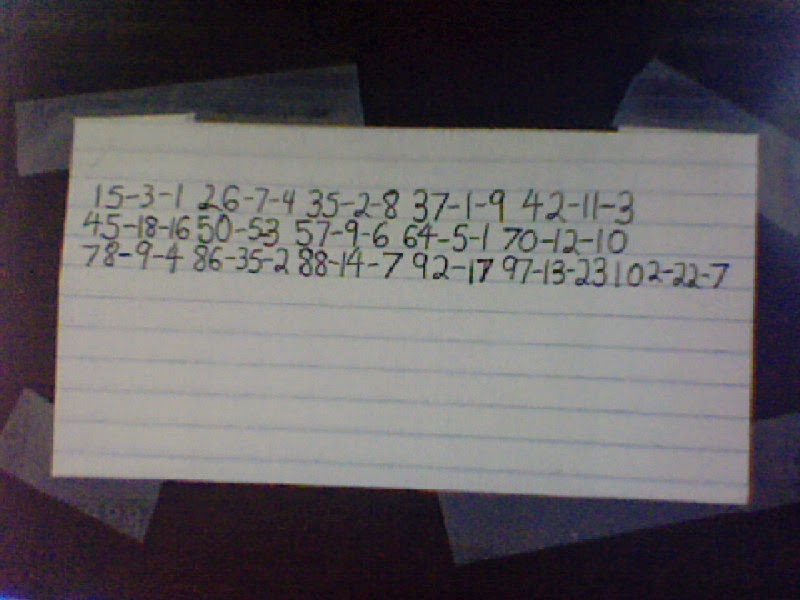 15-3-1 26-7-4 35-2-8 37-1-9 42-11-3
45-18-16 50-53 57-9-6 64-5-1 70-12-10
78-9-4 86-35-2 88-14-7 92-17 97-13-23 102-22-7